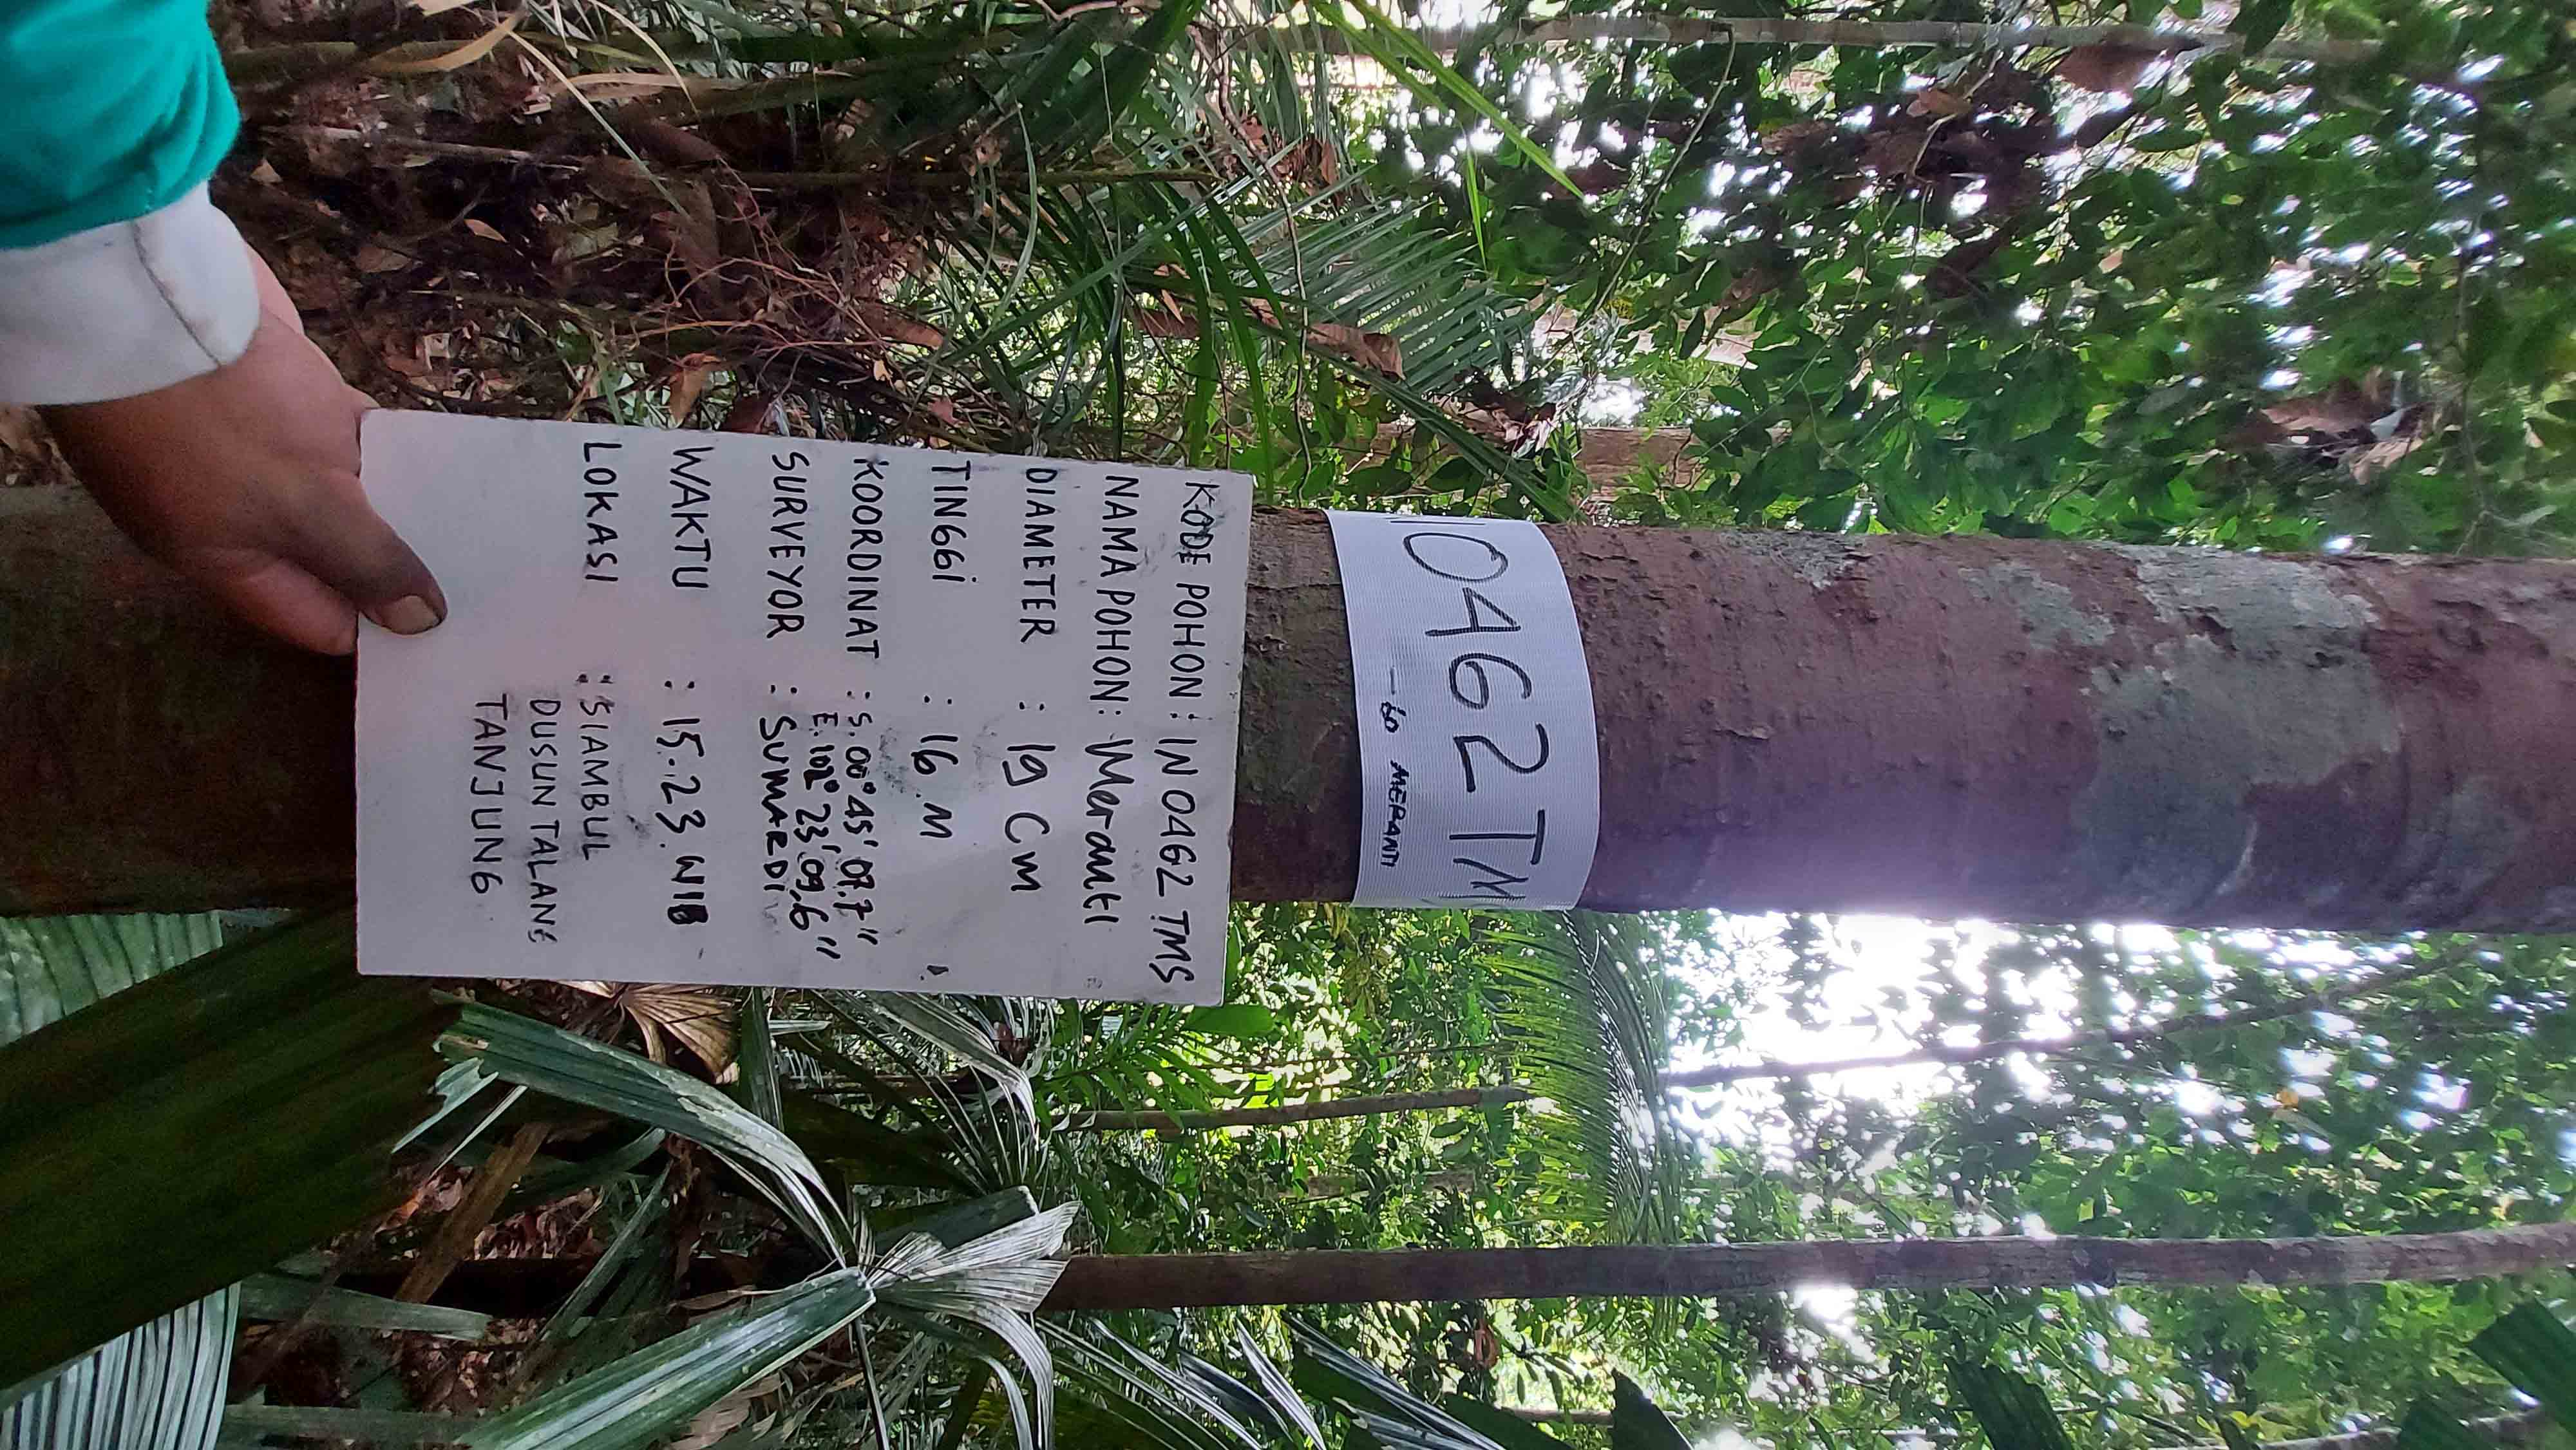 10462 TMS
- 60 MERANTI
KODE POHON : IN 0462 TMS
NAMA POHON : Meranti
DIAMETER : 19 Cm
TINGGi : 16 M
KOORDINAT : S. 00° 45' 07.7"
E. 102° 23' 09,6"
SURVEYOR : SUMARDI
WAKTU : 15.23. WIB
LOKASI : SIAMBUL
DUSUN TALANG
TANJUNG